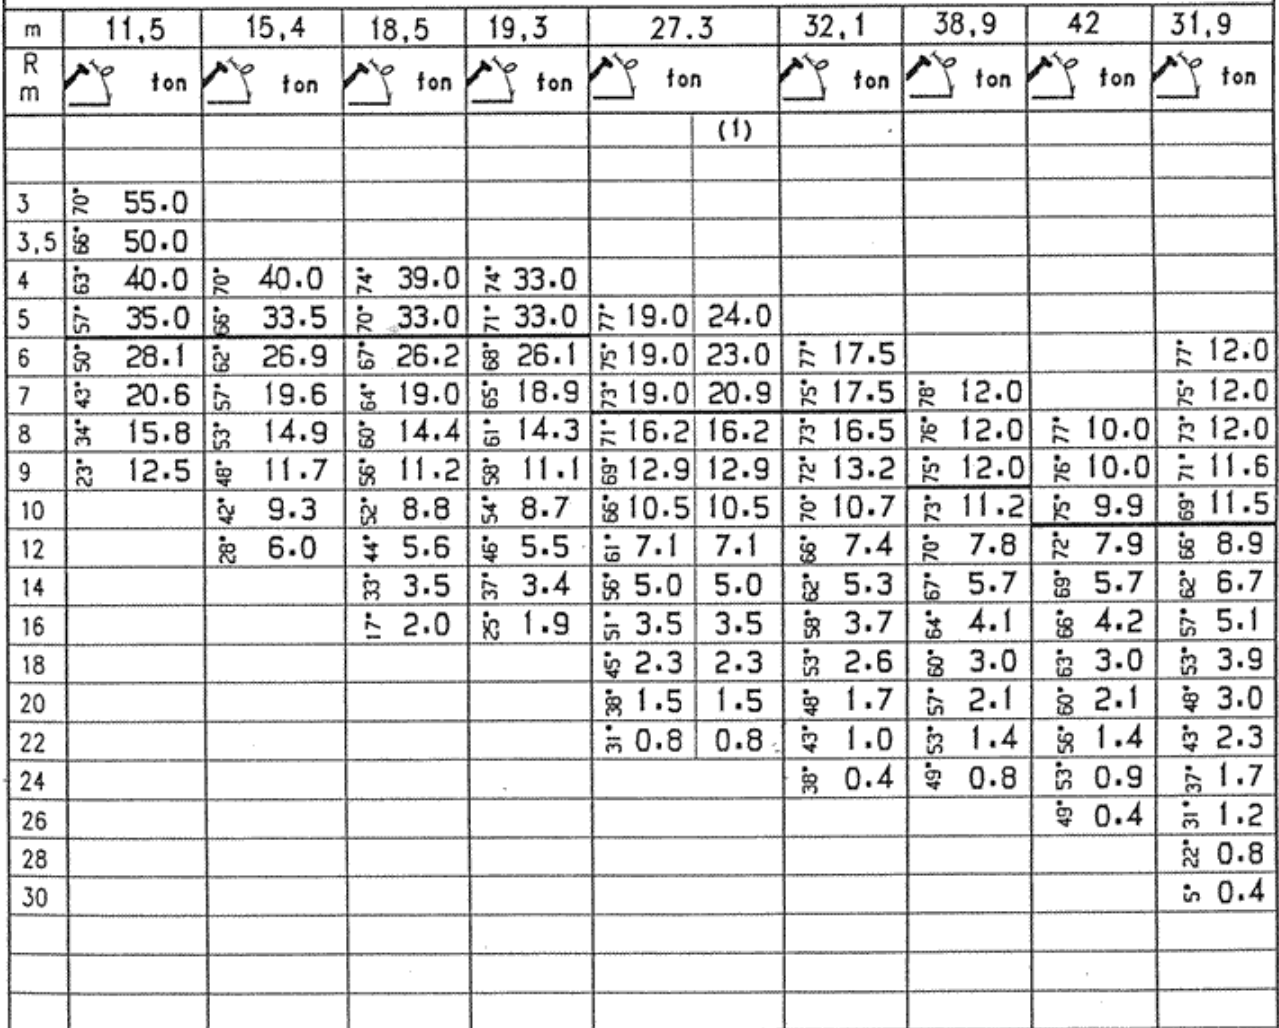 m 11,5 15,4 18,5 19,3 27.3 32,1 38,9 42 31,9
R m ton ton ton ton ton ton ton ton ton
(1)
3 70° 55.0
3,5 66° 50.0
4 63° 40.0 70° 40.0 74° 39.0 74° 33.0
5 57° 35.0 66° 33.5 70° 33.0 71° 33.0 77° 19.0 24.0
6 50° 28.1 62° 26.9 67° 26.2 68° 26.1 75° 19.0 23.0 77° 17.5 77° 12.0
7 43° 20.6 57° 19.6 64° 19.0 65° 18.9 73° 19.0 20.9 75° 17.5 78° 12.0 75° 12.0
8 34° 15.8 53° 14.9 60° 14.4 61° 14.3 71° 16.2 16.2 73° 16.5 76° 12.0 77° 10.0 73° 12.0
9 23° 12.5 48° 11.7 56° 11.2 58° 11.1 69° 12.9 12.9 72° 13.2 75° 12.0 76° 10.0 71° 11.6
10 42° 9.3 52° 8.8 54° 8.7 66° 10.5 10.5 70° 10.7 73° 11.2 75° 9.9 69° 11.5
12 28° 6.0 44° 5.6 46° 5.5 61° 7.1 7.1 66° 7.4 70° 7.8 72° 7.9 66° 8.9
14 33° 3.5 37° 3.4 56° 5.0 5.0 62° 5.3 67° 5.7 69° 5.7 62° 6.7
16 17° 2.0 25° 1.9 51° 3.5 3.5 58° 3.7 64° 4.1 66° 4.2 57° 5.1
18 45° 2.3 2.3 53° 2.6 60° 3.0 63° 3.0 53° 3.9
20 38° 1.5 1.5 48° 1.7 57° 2.1 60° 2.1 48° 3.0
22 31° 0.8 0.8 43° 1.0 53° 1.4 56° 1.4 43° 2.3
24 38° 0.4 49° 0.8 53° 0.9 37° 1.7
26 49° 0.4 31° 1.2
28 22° 0.8
30 5° 0.4